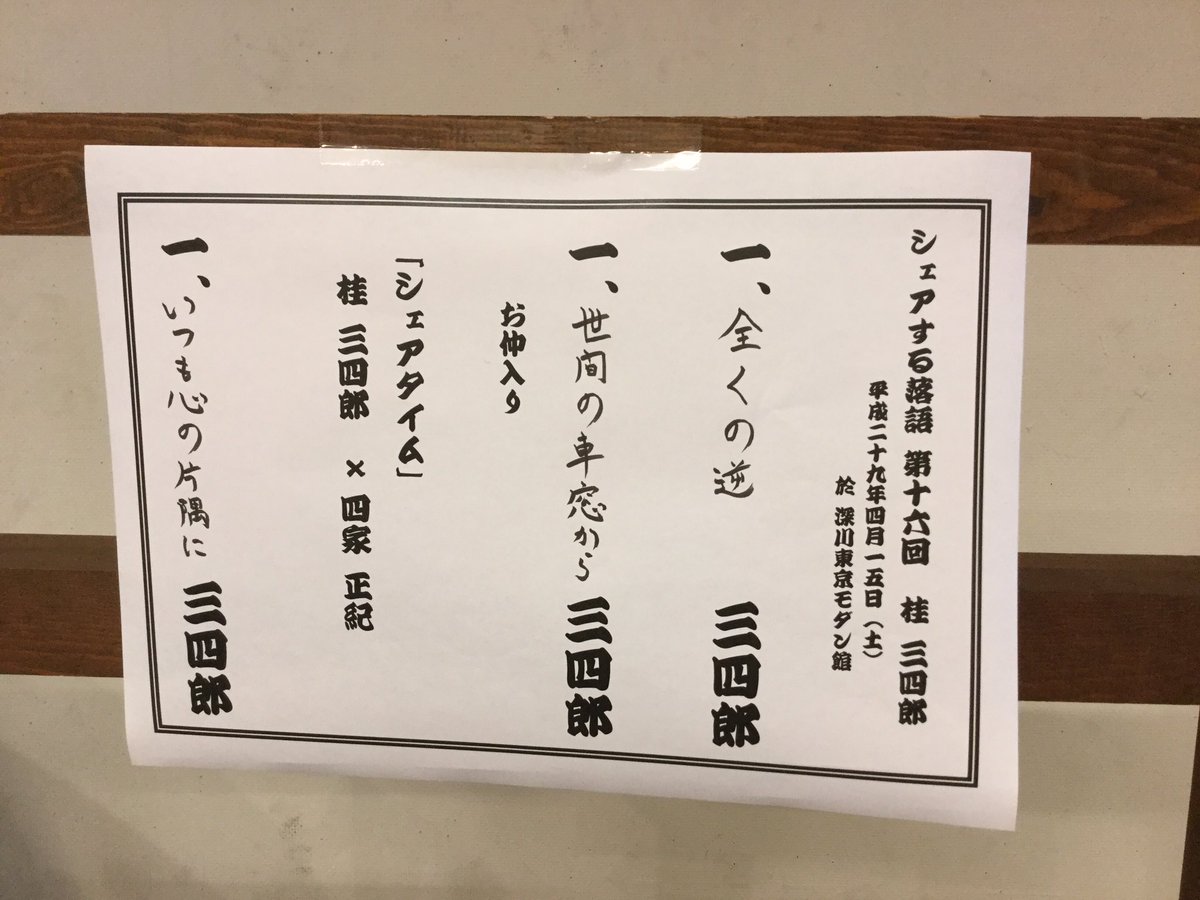 シェアする落語 第十六回 桂 三四郎
平成二十九年四月一五日（土）
於 深川東京モダン館
一、全くの逆 三四郎
一、世間の車窓から 三四郎
お仲入り
「シェアタイム」
桂 三四郎 × 四家 正紀
一、いつも心の片隅に 三四郎